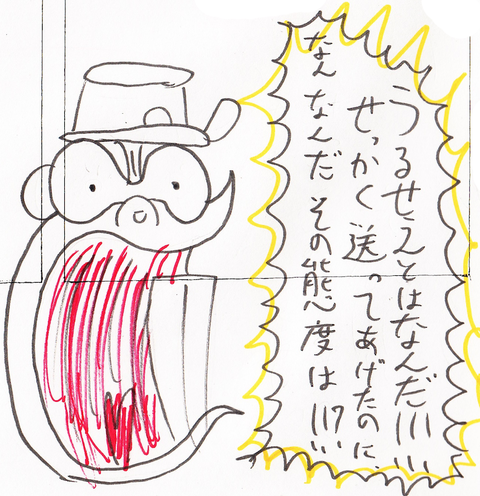 うるせえとはなんだ!!!
せっかく送ってあげたのに、
なんなんだその態度は!!?!!